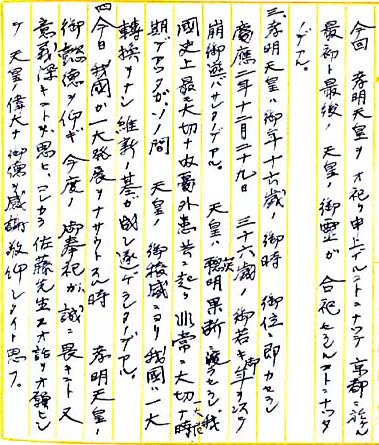 今回 孝明天皇ヲオ祀リ申上ゲルコトニナツテ 京都ニ於ル
最初ト最後ノ天皇ノ御霊ガ 合祀セラルルコトニナツタノ
デアル。
三、孝明天皇ハ御年十六歳ノ御時 御位ニ即カセラレ
慶應二年十二月二十九日 三十六歳ノ御若キ御年ヲ以テ
崩御遊バサレタノデアル。 天皇ハ聰明英斷ニ渡ラセラレ我
國史上最モ大切ナ内憂外患並ビ起ル非常ニ大切ナ時
期デアツタガソノ間 天皇ノ御稜威ニヨリ我國ハ一大
轉換ヲナシ維新ノ基ガ成シ遂ゲラレタノデアル。
四、今日我國ガ一大発展ヲナサウトスル時 孝明天皇ノ
御懿德ヲ仰ギ今度ノ御奉祀ガ誠ニ畏キコト又
意義深キコトヲ思ヒ、コレカラ佐藤先生ニオ話ヲオ願ヒシ
テ天皇ノ偉大ナ御德ヲ感謝敬仰シタイト思フ。